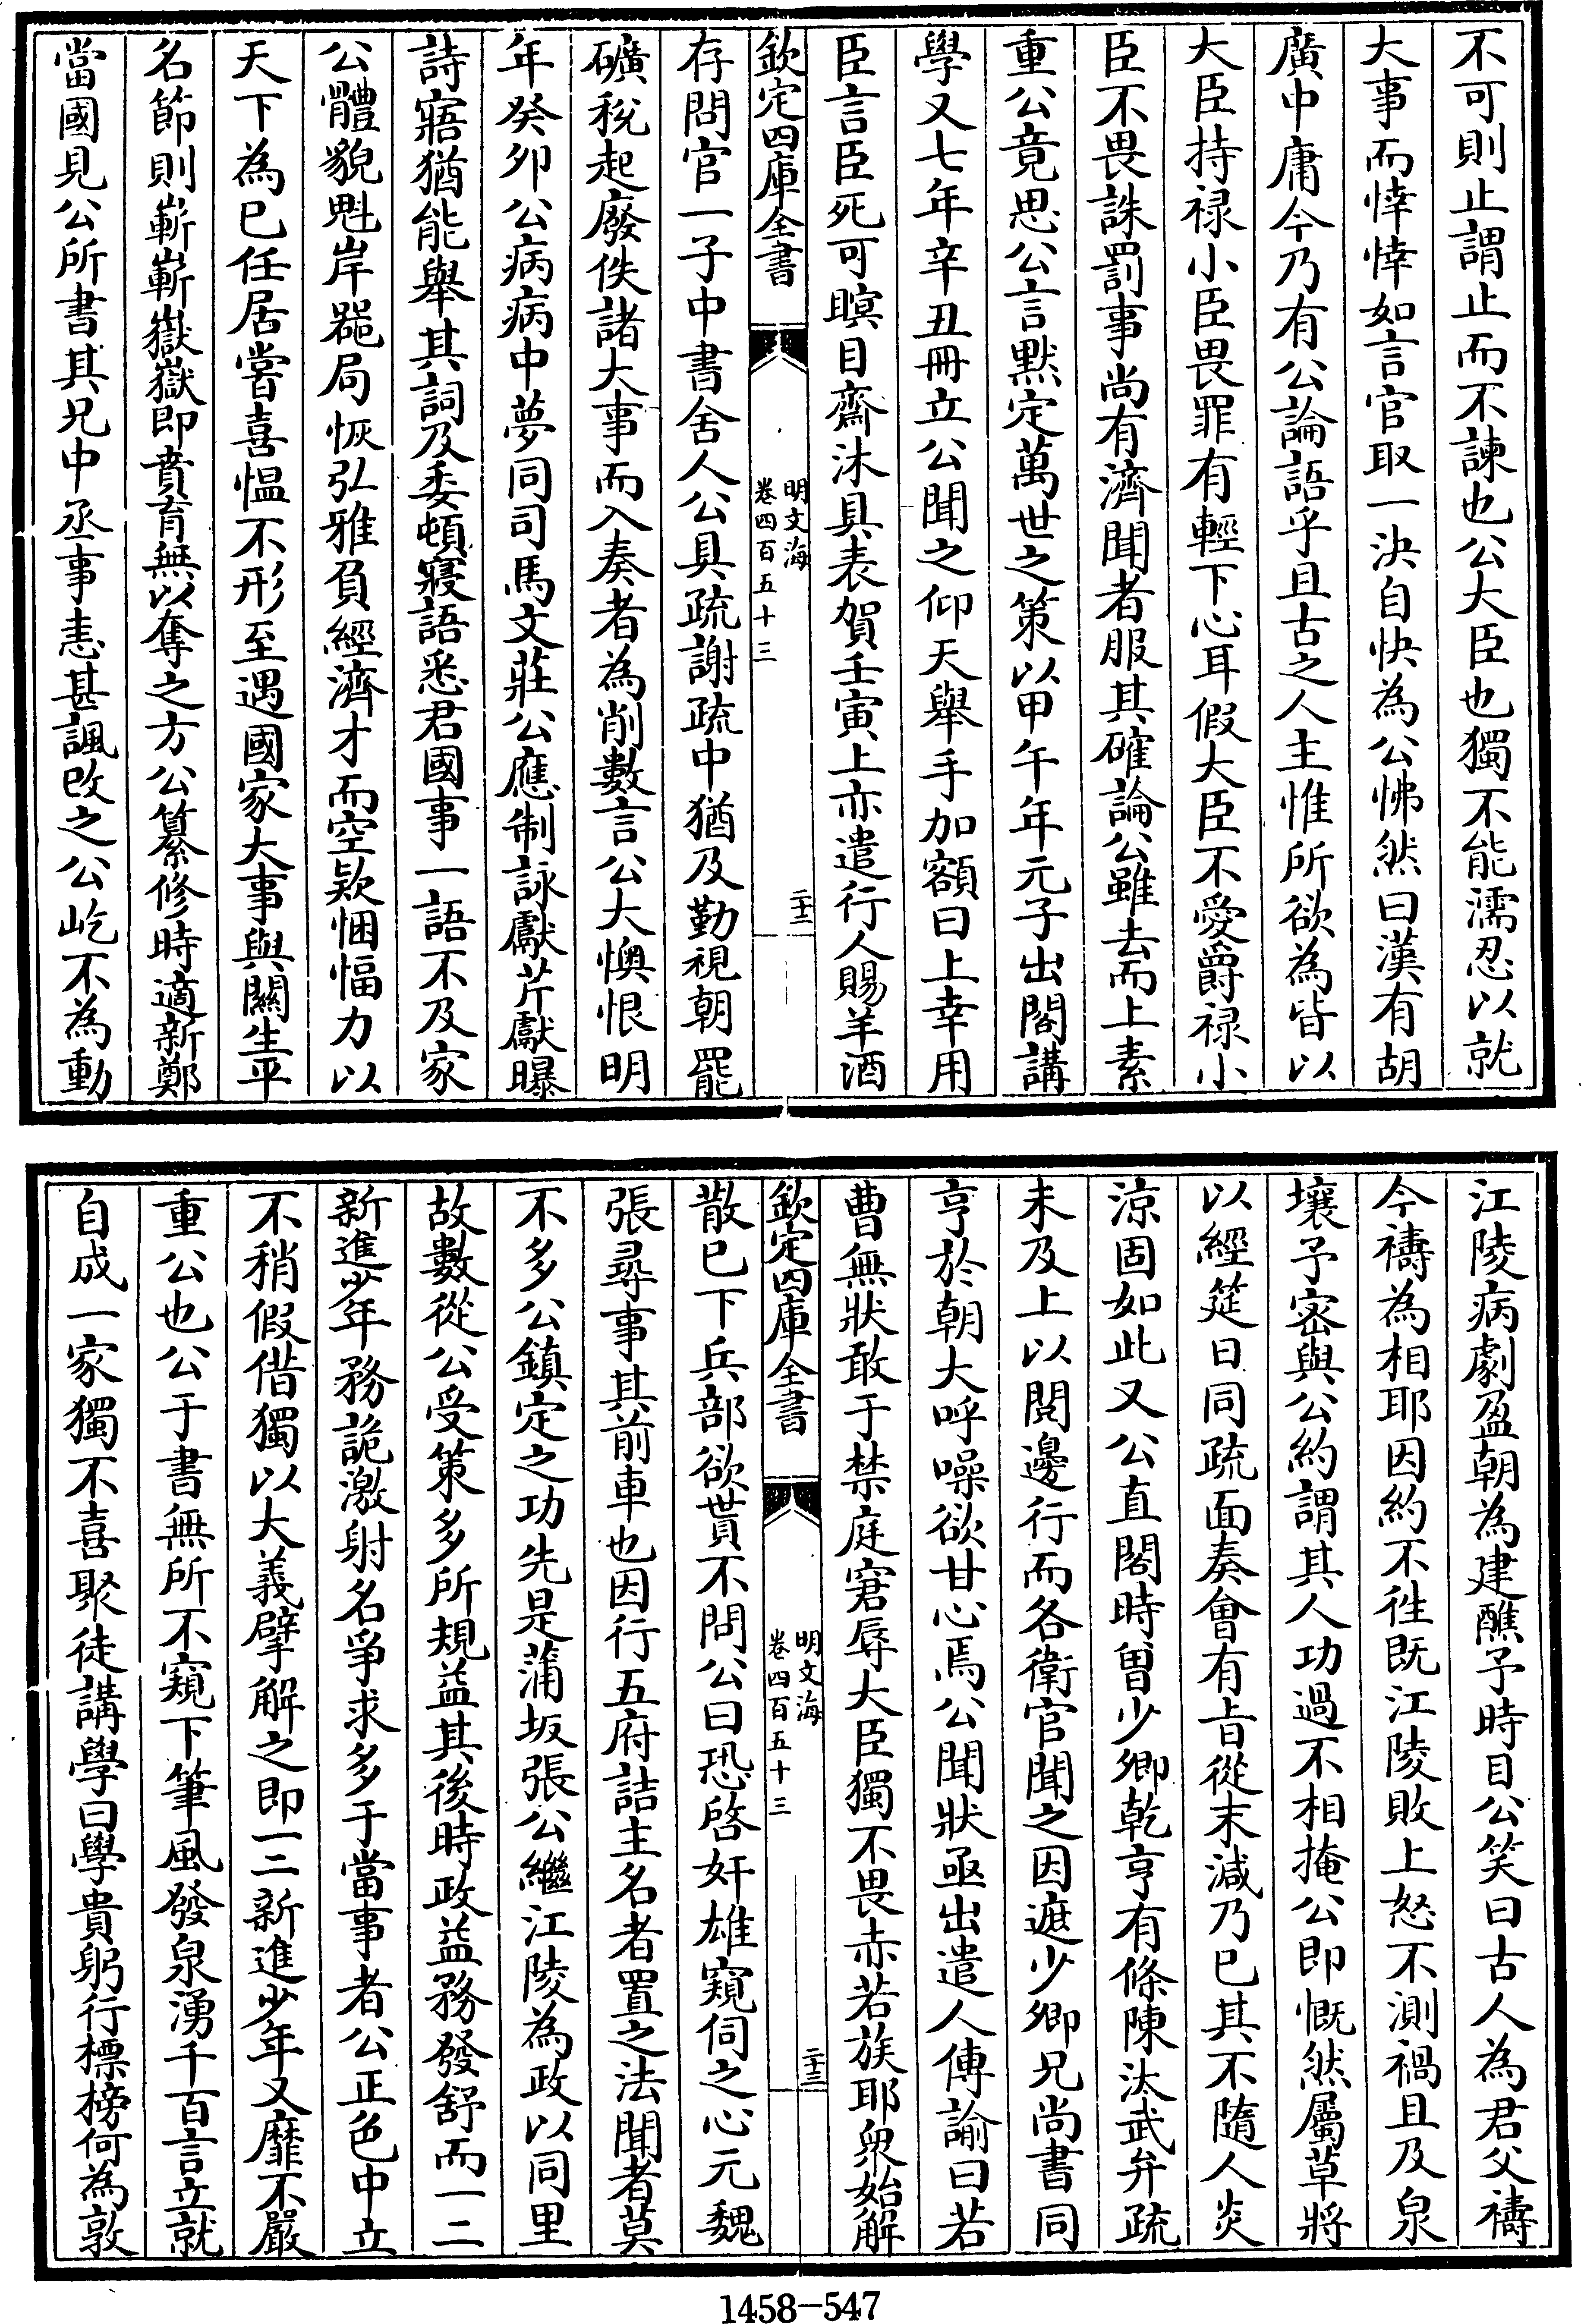 不可則止謂止而不諫也公大臣也獨不能濡忍以就
大事而悻悻如言官取一決自快為公怫然曰漢有胡
廣中庸今乃有公論語乎且古之人主惟所欲為皆以
大臣持祿小臣畏罪有輕下心耳假大臣不愛爵祿小
臣不畏誅罰事尚有濟聞者服其確論公雖去而上素
重公竟思公言默定萬世之策以甲午年元子出閣講
學又七年辛丑冊立公聞之仰天舉手加額曰上幸用
臣言臣死可瞑目齋沐具表賀壬寅上亦遣行人賜羊酒
欽定四庫全書
明文海
卷四百五十三
二十二
存問官一子中書舍人公具疏謝疏中猶及勤視朝罷
礦稅起廢佚諸大事而入奏者為削數言公大懊恨明
年癸卯公病病中夢同司馬文莊公應制詠獻芹獻曝
詩寤猶能舉其詞及委頓寢語悉君國事一語不及家
公體貌魁岸器局恢弘雅負經濟才而空欵悃愊力以
天下為已任居嘗喜愠不形至遇國家大事與關生平
名節則嶄嶄嶽嶽即賁育無以奪之方公纂修時適新鄭
當國見公所書其兄中丞事恚甚諷改之公屹不為動
江陵病劇盈朝為建醮予時目公笑曰古人為君父禱
今禱為相耶因約不徃既江陵敗上怒不測禍且及泉
壤予密與公約謂其人功過不相掩公即慨然屬草將
以經筵日同疏面奏會有旨從末減乃已其不隨人炎
涼固如此又公直閣時曽少卿乾亨有條陳汰武弁疏
未及上以閱邊行而各衛官聞之因遮少卿兄尚書同
亨於朝大呼噪欲甘心焉公聞狀亟出遣人傳諭曰若
曹無狀敢于禁庭窘辱大臣獨不畏赤若族耶衆始解
欽定四庫全書
明文海
卷四百五十三
二十三
散已下兵部欲貰不問公曰恐啓奸雄窺伺之心元魏
張尋事其前車也因行五府詰主名者置之法聞者莫
不多公鎮定之功先是蒲坂張公繼江陵為政以同里
故數從公受策多所規益其後時政益務發舒而一二
新進少年務詭激射名爭求多于當事者公正色中立
不稍假借獨以大義擘解之即一二新進少年又靡不嚴
重公也公于書無所不窺下筆風發泉湧千百言立就
自成一家獨不喜聚徒講學曰學貴躬行標榜何為敦
1458-547